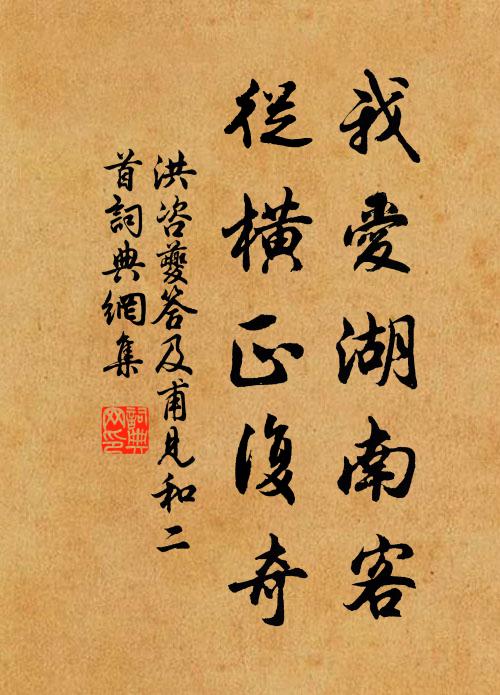 我愛湖南客
從橫正復奇
洪咨夔答及甫見和二
首詞典網集
詞典
网印